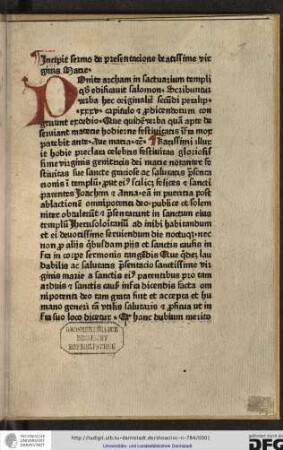 Incipit sermo de presentacione beatissime vir
ginis Marie.
Ponite archam in sactuarium templi
qd edificauit salomon. Scribuntur
verba hec originalit secūdi paralip.
xxxv. capitulo
gruunt exordio. Que quidē verba quā apte de
seruiant materie hodierne festiuitatis
patebit Aue maria. Karissimi illu
xit hodie preclara celebris festiuitas gloriosis
sime virginis genitricis dei marie
festiuitas sue sancte graciose ac salutaris pn̄sen
tacionis ī templū felices et sancti
parentes Joachim et Anna eā in puericia post
ablactionē omnipotenti deo publice et solem
niter obtulerūt et pn̄sentarunt in sanctum eius
templū Iherosolomitanū ad inibi habitandum
et ei deuotissime seruiendum die noctuq; nec
non ꝓ aliis qbusdam piis et sanctis causis in
fra in corpe sermonis tangēdis Que qdē lau
dabilis ac salutaris pn̄sentacio sanctissime vir
ginis marie a sanctis parentibus pro tam
arduis et sanctis caus infra dicendis facta om
nipotenti deo tam grata fuit et accepta et hu
mano generi tā vtilis salutaris et ꝓficua ut in
fra suo loco dicetur. Et hanc dubium merito
GROSSHERZOGLICH
HESSISCHE
HOFBIBLIOTHEK
http://tudigit.ulb.tu-darmstadt.de/show/inc-ii-784/0001
Universitäts- und Landesbibliothek Darmstadt
DFG